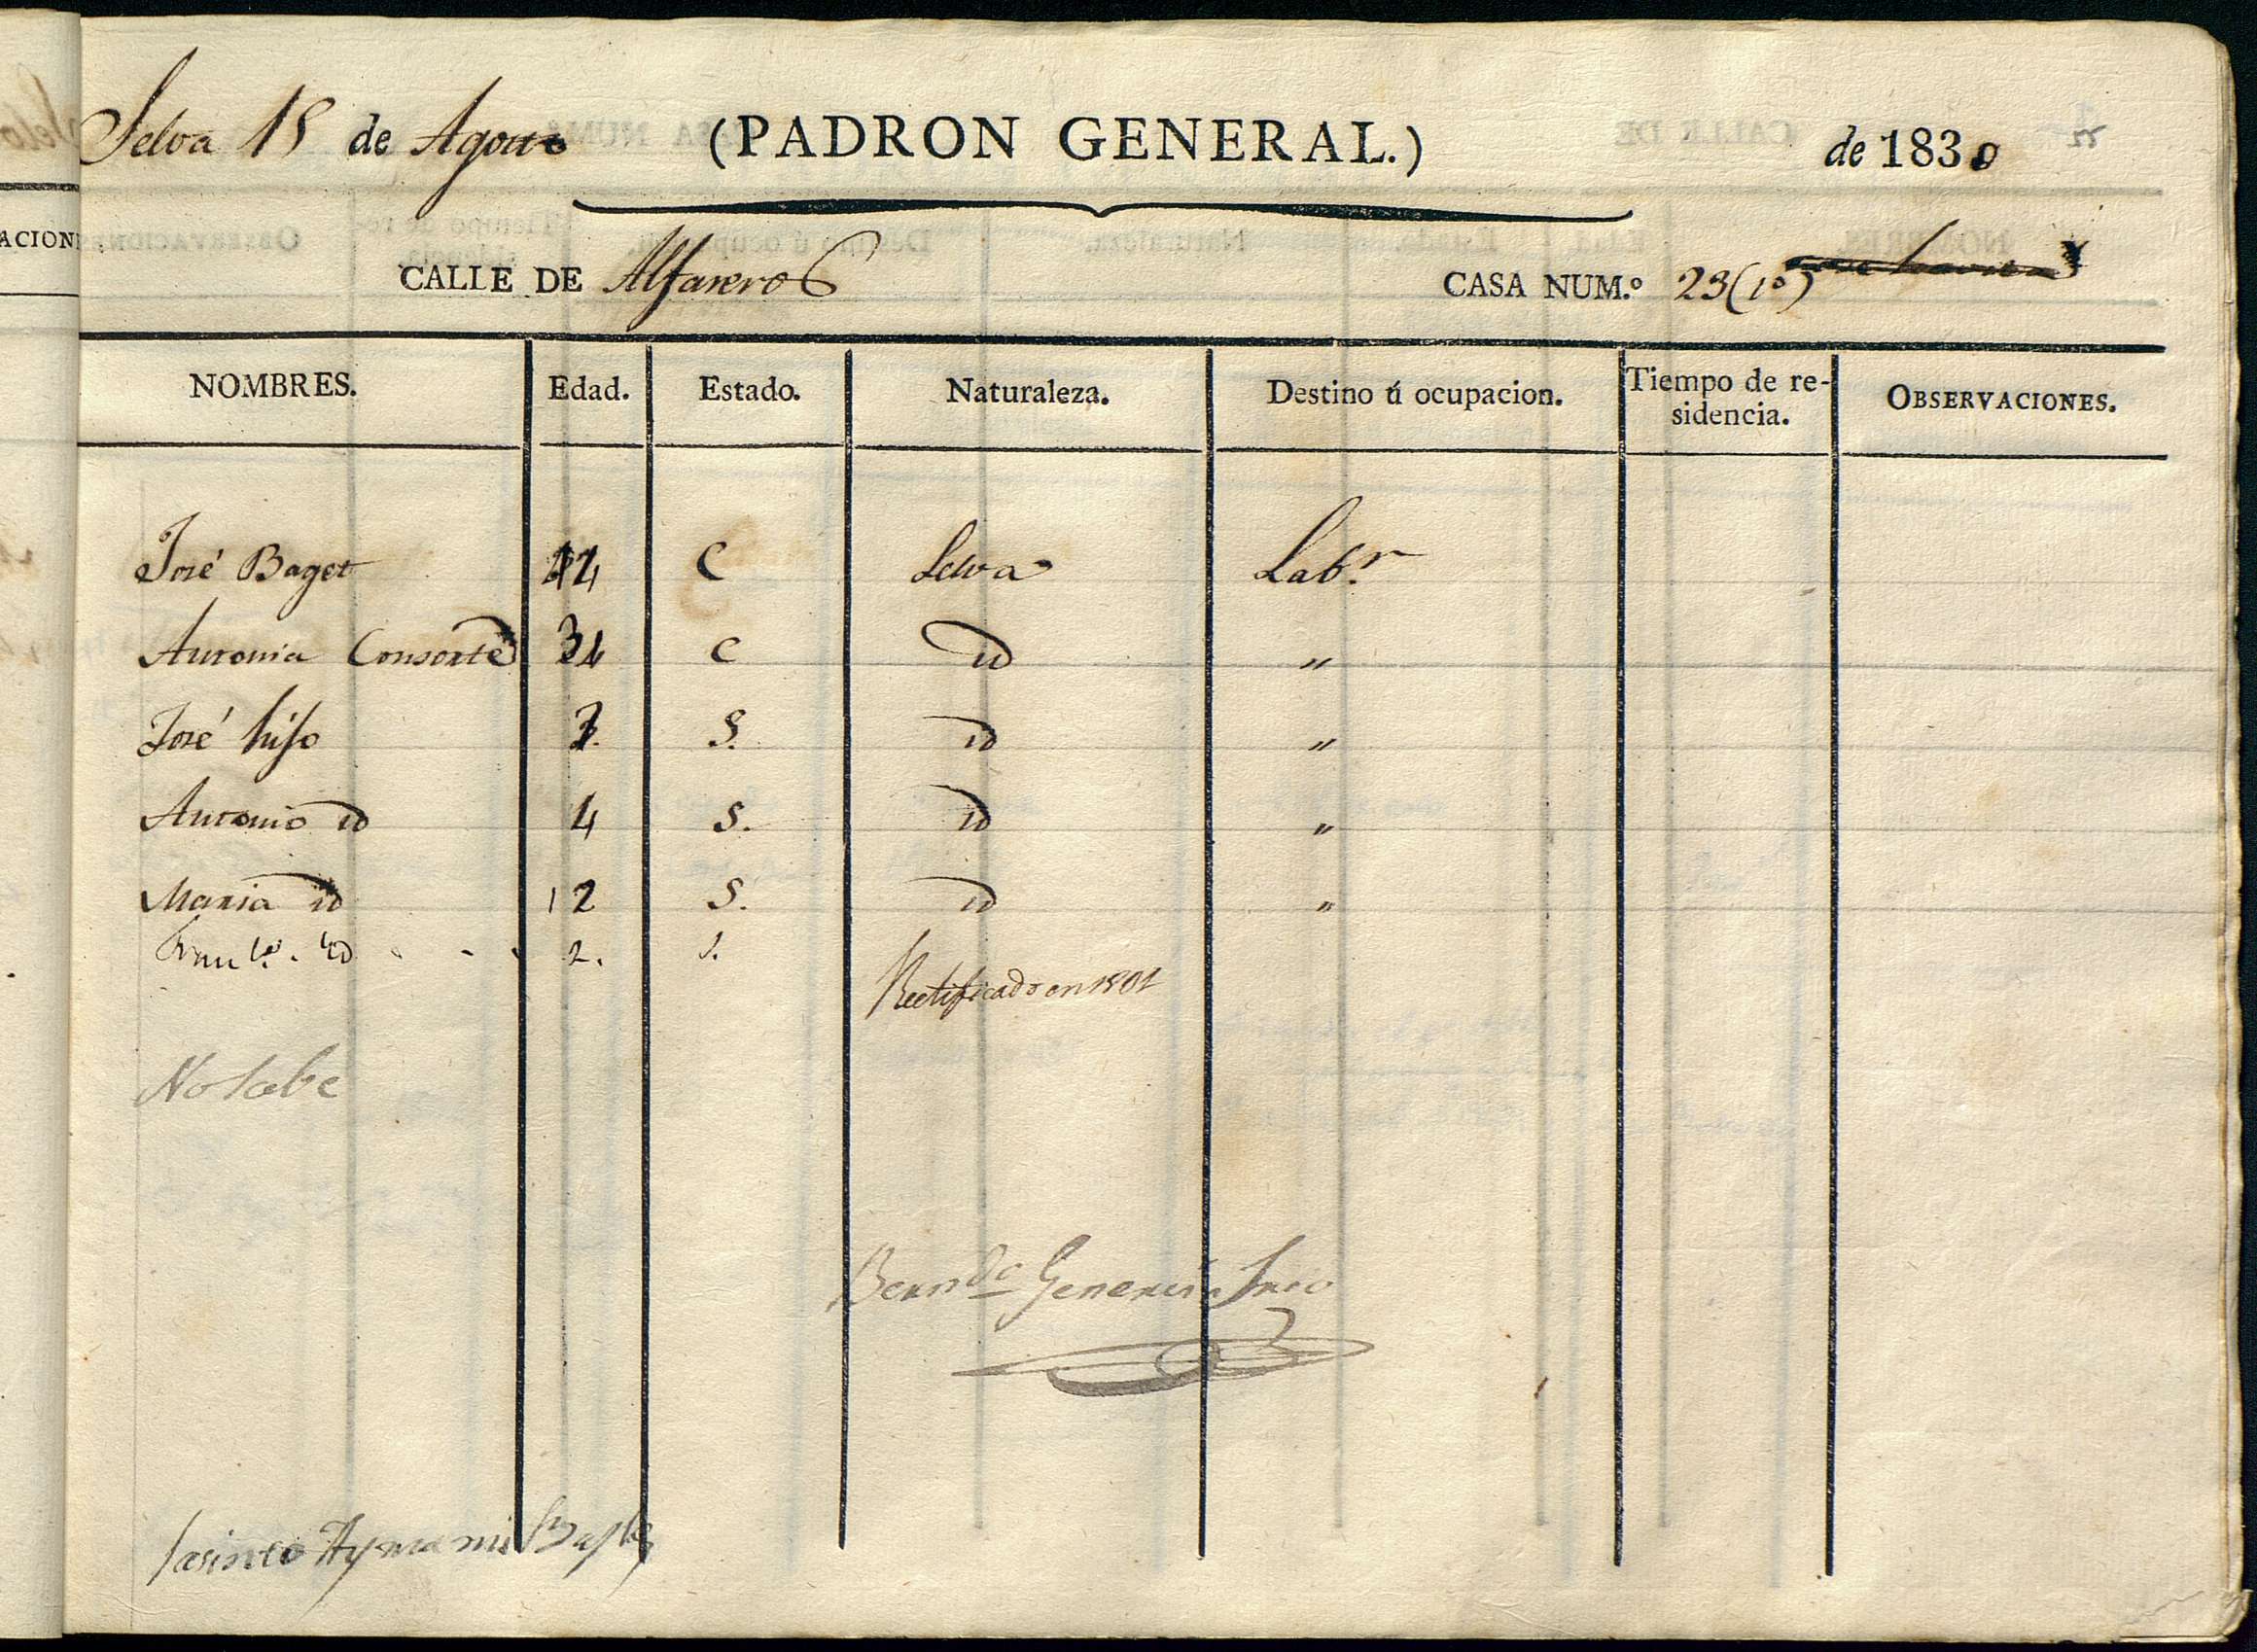 Selva 15 de Agosto (PADRON GENERAL.) de 1830
CALLE DE Alfareros CASA NUM.º 23 (1º)
NOMBRES. Edad. Estado. Naturaleza. Destino ú ocupacion. Tiempo de re-sidencia. OBSERVACIONES.
José Baget C Selva Lab.r
Antonia Consorte 34 C id "
José hijo S. id "
Antonio id 4 S. id "
Maria id 12 S. id "
id 2. S.
Rectificado en
No sabe
Jasinto Aymami
ACION